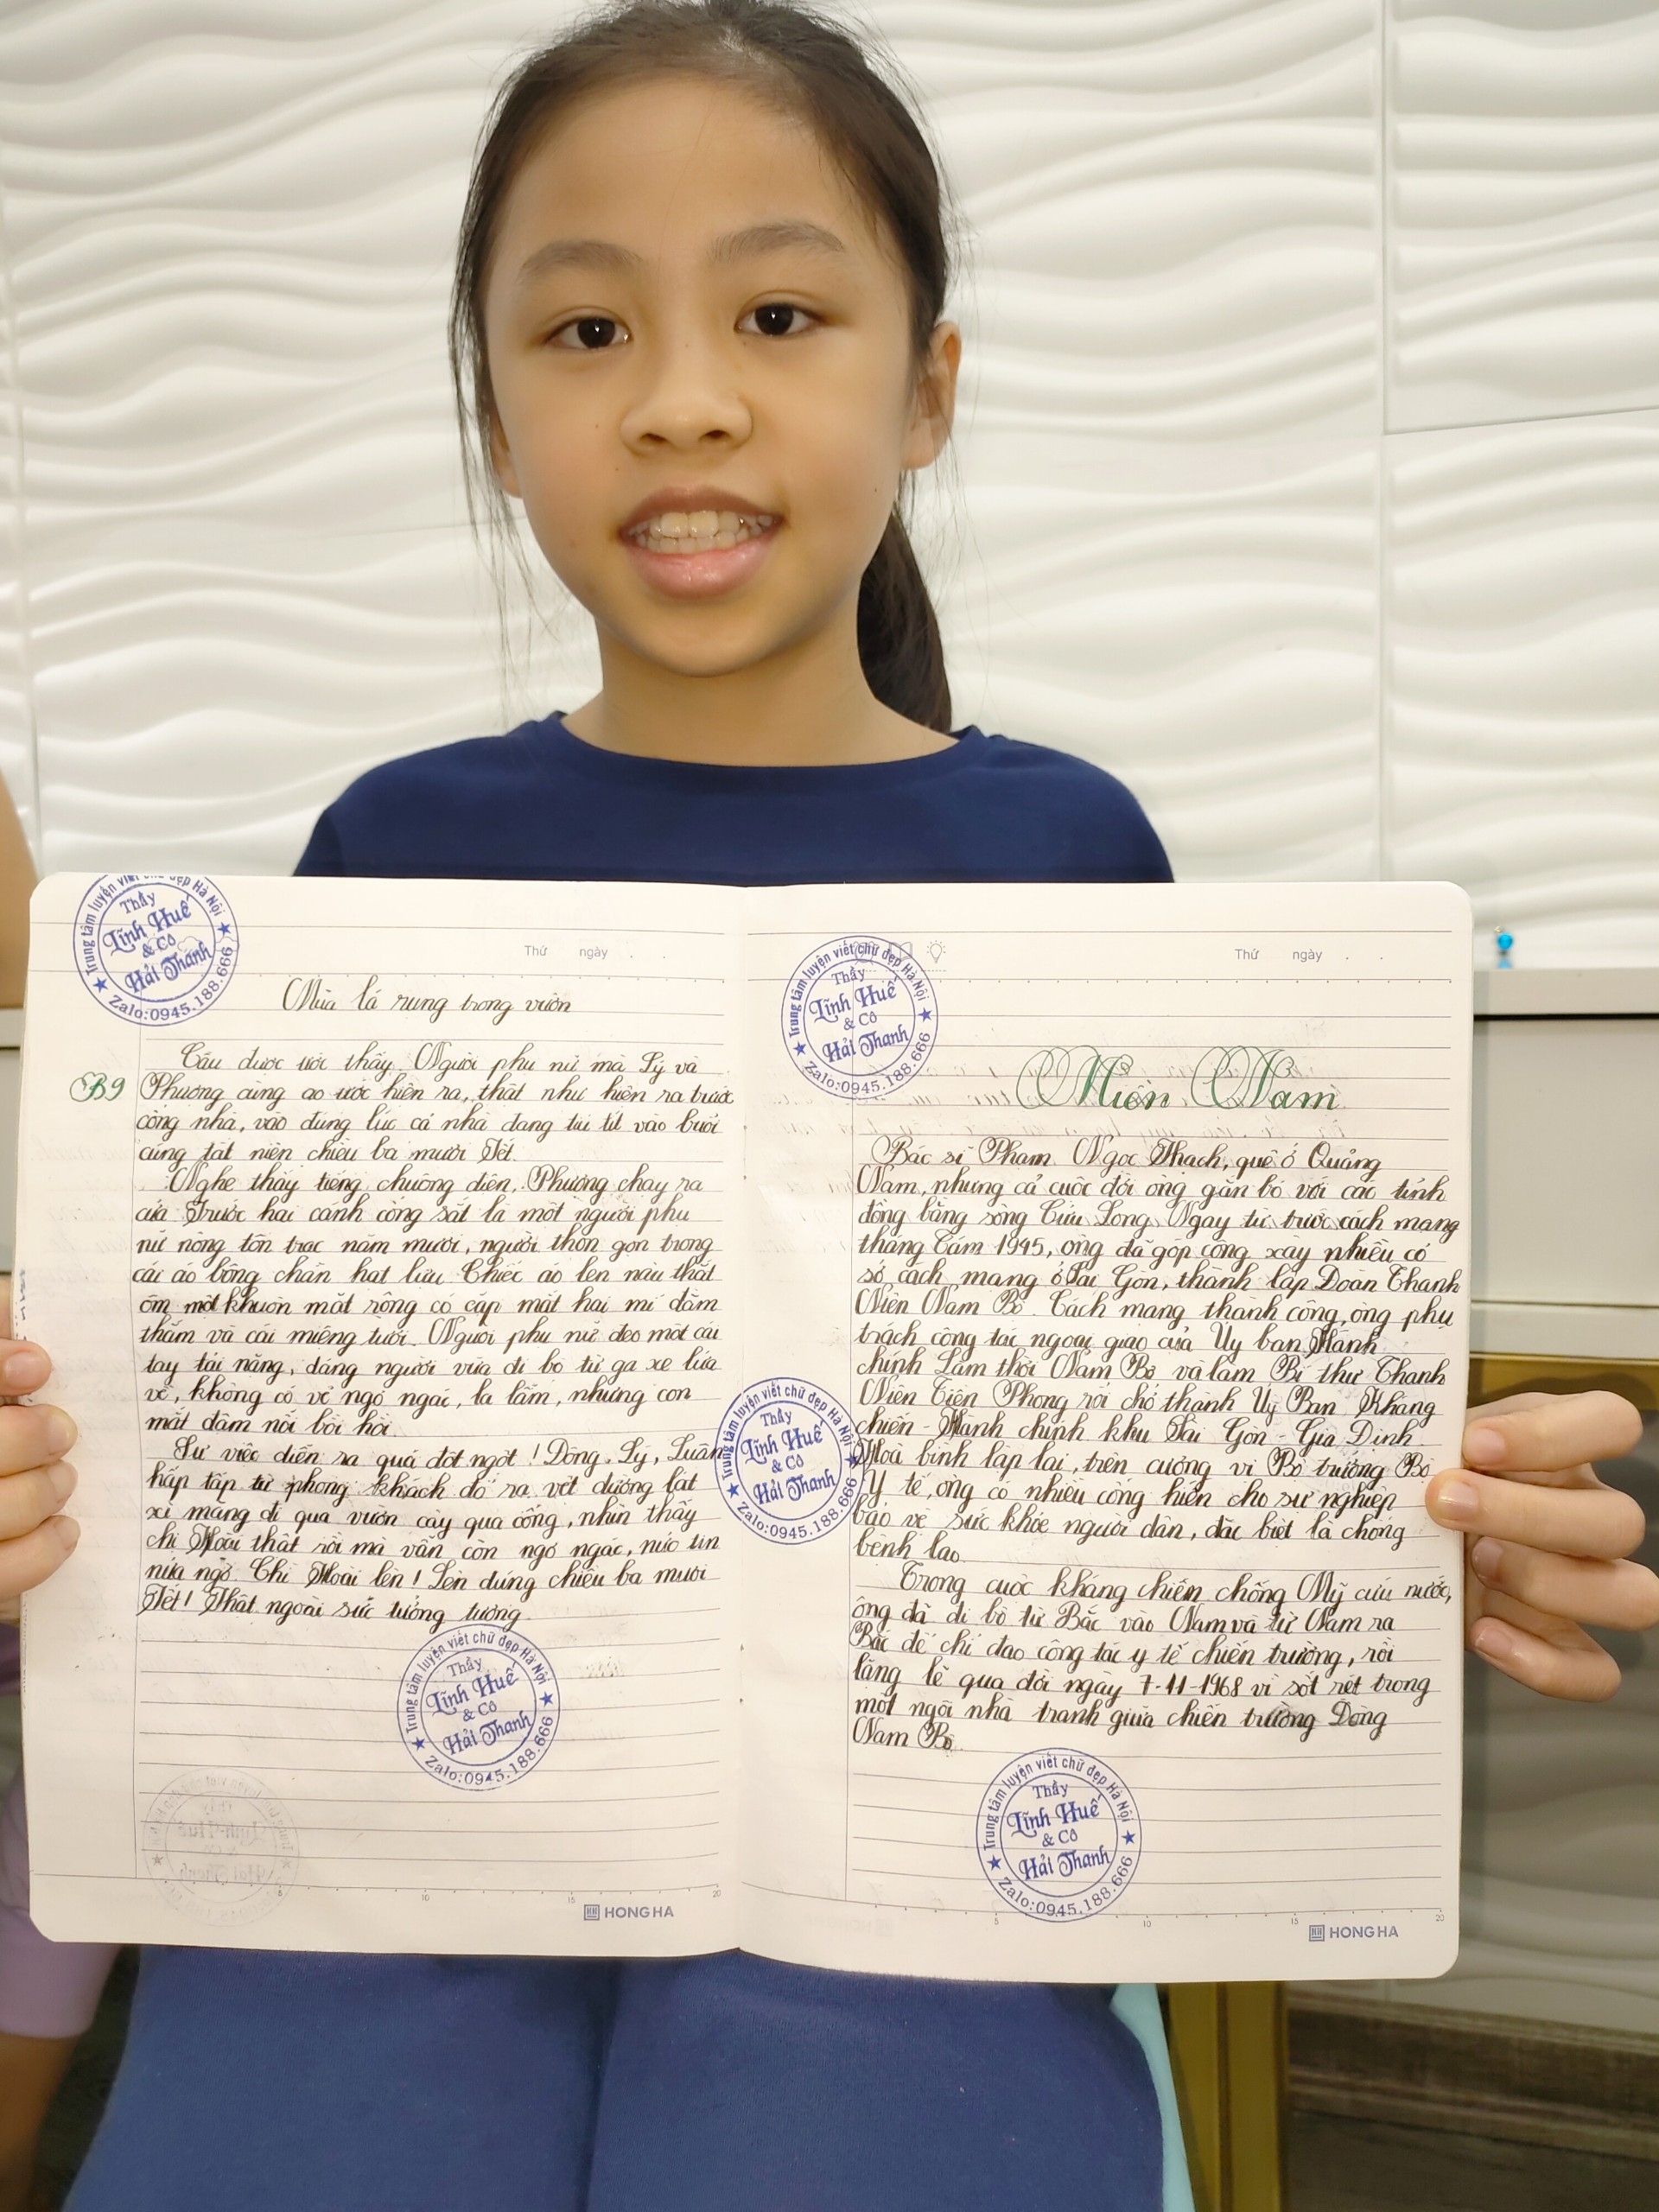 Trung tâm luyện viết chữ đẹp Hà Nội
Thầy
Lĩnh Huế
& Cô
Hải Thanh
Zalo:0945.188.666
Thứ ngày . .
Mùa lá rụng trong vườn
B9
Cầu được ước thấy. Người phụ nữ mà Lý và
Phượng cùng ao ước hiện ra, thật như hiện ra trước
cổng nhà, vào đúng lúc cả nhà đang tíu tít vào buổi
cúng tất niên chiều ba mươi Tết.
Nghe thấy tiếng chuông điện, Phượng chạy ra
cửa. Trước hai cánh cổng sắt là một người phụ
nữ nông tôn trạc năm mươi, người thon gọn trong
cái áo bông chần hạt lựu. Chiếc áo len nâu thắt
ôm một khuôn mặt rộng có cặp mắt hai mí đằm
thắm và cái miệng tươi. Người phụ nữ đeo một cái
tay tải nặng, dáng người vừa đi bộ từ ga xe lửa
về, không có vẻ ngơ ngác, lạ lẫm, nhưng con
mắt đăm nỗi bồi hồi.
Sự việc diễn ra quá đột ngột! Đông, Lý, Luận
hấp tấp từ phòng khách đổ ra, vệt đường lát
xi măng đi qua vườn cây qua cổng, nhìn thấy
chị Hoài thật rồi mà vẫn còn ngơ ngác, nửa tin
nửa ngờ. Chị Hoài lên! Lên đúng chiều ba mươi
Tết! Thật ngoài sức tưởng tượng.
Trung tâm luyện viết chữ đẹp Hà Nội
Thầy
Lĩnh Huế
& Cô
Hải Thanh
Zalo:0945.188.666
HONG HA
Trung tâm luyện viết chữ đẹp Hà Nội
Thầy
Lĩnh Huế
& Cô
Hải Thanh
Zalo:0945.188.666
Trung tâm luyện viết chữ đẹp Hà Nội
Thầy
Lĩnh Huế
& Cô
Hải Thanh
Zalo:0945.188.666
Thứ ngày . .
Miền Nam
Bác sĩ Phạm Ngọc Thạch, quê ở Quảng
Nam, nhưng cả cuộc đời ông gắn bó với các tỉnh
đồng bằng sông Cửu Long. Ngay từ trước cách mạng
tháng Tám 1945, ông đã góp công xây nhiều cơ
sở cách mạng ở Sài Gòn, thành lập Đoàn Thanh
Niên Nam Bộ. Cách mạng thành công, ông phụ
trách công tác ngoại giao của Ủy ban Hành
chính Lâm thời Nam Bộ và làm Bí thư Thanh
Niên Tiền Phong rồi chở thành Uỷ Ban Kháng
chiến - Hành chính khu Sài Gòn - Gia Định.
Hoà bình lập lại, trên cương vị Bộ trưởng Bộ
Y tế, ông có nhiều cống hiến cho sự nghiệp
bảo vệ sức khỏe người dân, đặc biệt là chống
bệnh lao.
Trong cuộc kháng chiến chống Mỹ cứu nước,
ông đã đi bộ từ Bắc vào Nam và từ Nam ra
Bắc để chỉ đạo công tác y tế chiến trường, rồi
lặng lẽ qua đời ngày 7-11-1968 vì sốt rét trong
một ngôi nhà tranh giữa chiến trường Đông
Nam Bộ.
Trung tâm luyện viết chữ đẹp Hà Nội
Thầy
Lĩnh Huế
& Cô
Hải Thanh
Zalo:0945.188.666
HONG HA